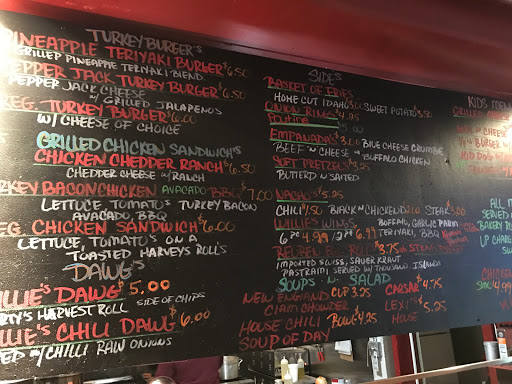 TURKEY BURGER'S
PINEAPPLE TERIYAKI BURGER $6.50
GRILLED PINEAPPLE TERIYAKI BLEND
PEPPER JACK TURKEY BURGER $6.50
PEPPER JACK CHEESE
w/ GRILLED JALAPENOS
REG. TURKEY BURGER $6.00
W/ CHEESE OF CHOICE
GRILLED CHICKEN SANDWICH'S
CHICKEN CHEDDER RANCH $6.50
CHEDDER CHEESE w/ RANCH
TURKEY BACON CHICKEN AVOCADO BBQ $7.00
LETTUCE, TOMATO'S TURKEY BACON
AVOCADO, BBQ
REG. CHICKEN SANDWICH $6.00
LETTUCE, TOMATO'S ON A
TOASTED HARVEYS ROLL'S
DAWG'S
LLIE'S DAWG $5.00
RTY'S HARVEST ROLL SIDE OF CHIPS
LLIE'S CHILI DAWG $6.00
ED w/ CHILI RAW ONIONS
SIDES
BASKET OF FRIES
HOME CUT IDAHO 3.00 SWEET POTATO 3.50
ONION RING'S
POUTINE 5.00
EMPANADA'S $3.00
BEEF N CHEESE BLUE CHEESE CRUMBLE BUFFALO CHICKEN
SOFT PRETZEL $3.25
BUTTERED N SALTED
NACHO'S 5.25
CHILI 7.50 CHICKEN STEAK
WILLIE'S WINGS BUFFALO, GARLIC PARM
6 PC 12 PC 6.99 TERIYAKI, BBQ
REUBEN EGG ROLL'S $3.75
IMPORTED SWISS, SAUER KRAUT
PASTRAMI SERVED W/ THOUSAND ISLANDS
SOUPS N SALAD
NEW ENGLAND CLAM CHOWDER CUP 3.25 CAESAR $4.75
HOUSE CHILI BOWL 4.25 LEXI'S HOUSE $5.25
SOUP OF DAY
KIDS MEN
GRILLED
CHEESE
BURGER
KID DOG
ALL
SERVED
BAKERY
UP CHARG
CHICKEN